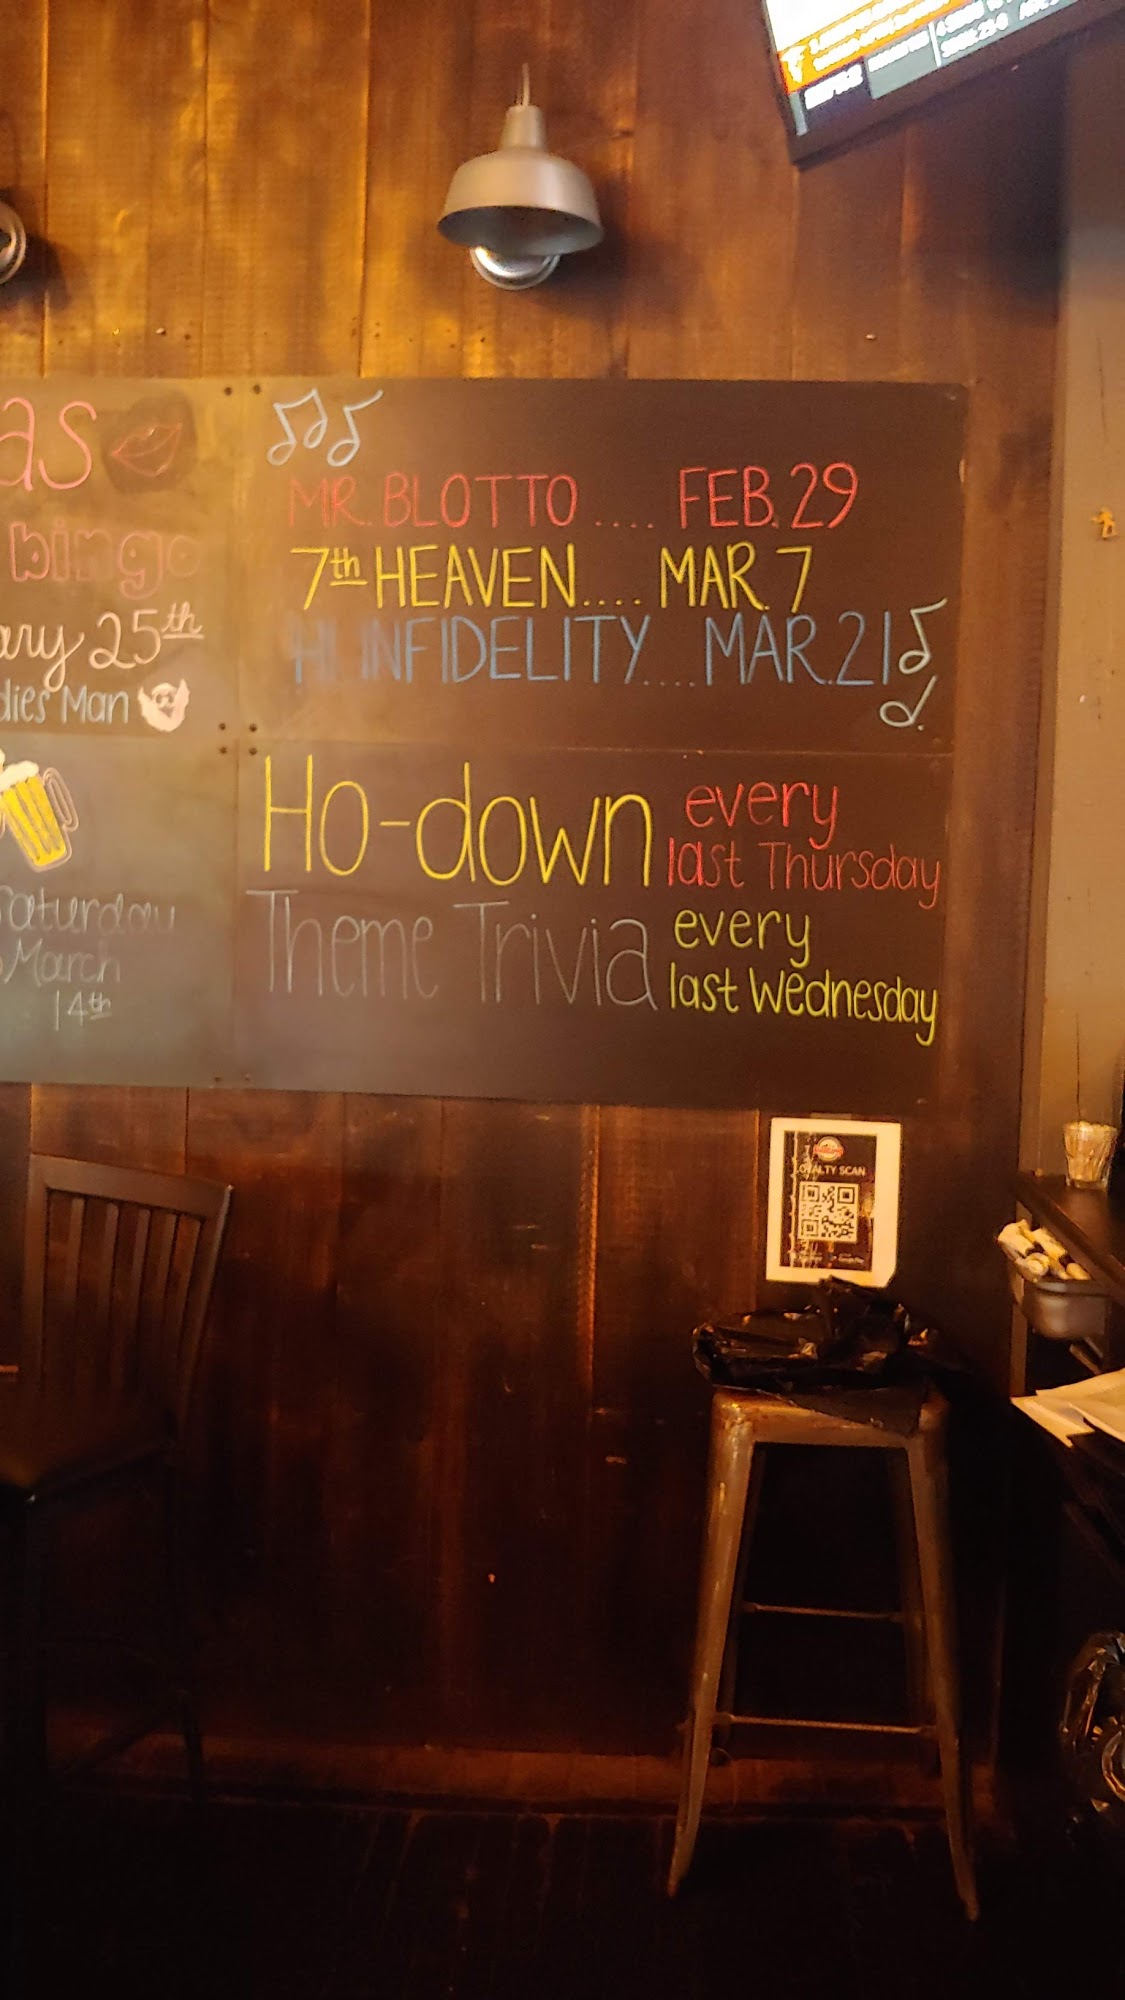 as
bingo
ary 25th
dies Man
Saturday
March
14th
MR. BLOTTO .... FEB. 29
7th HEAVEN.... MAR. 7
HI INFIDELITY.... MAR. 21
Ho-down every
last Thursday
Theme Trivia every
last Wednesday
LOYALTY SCAN